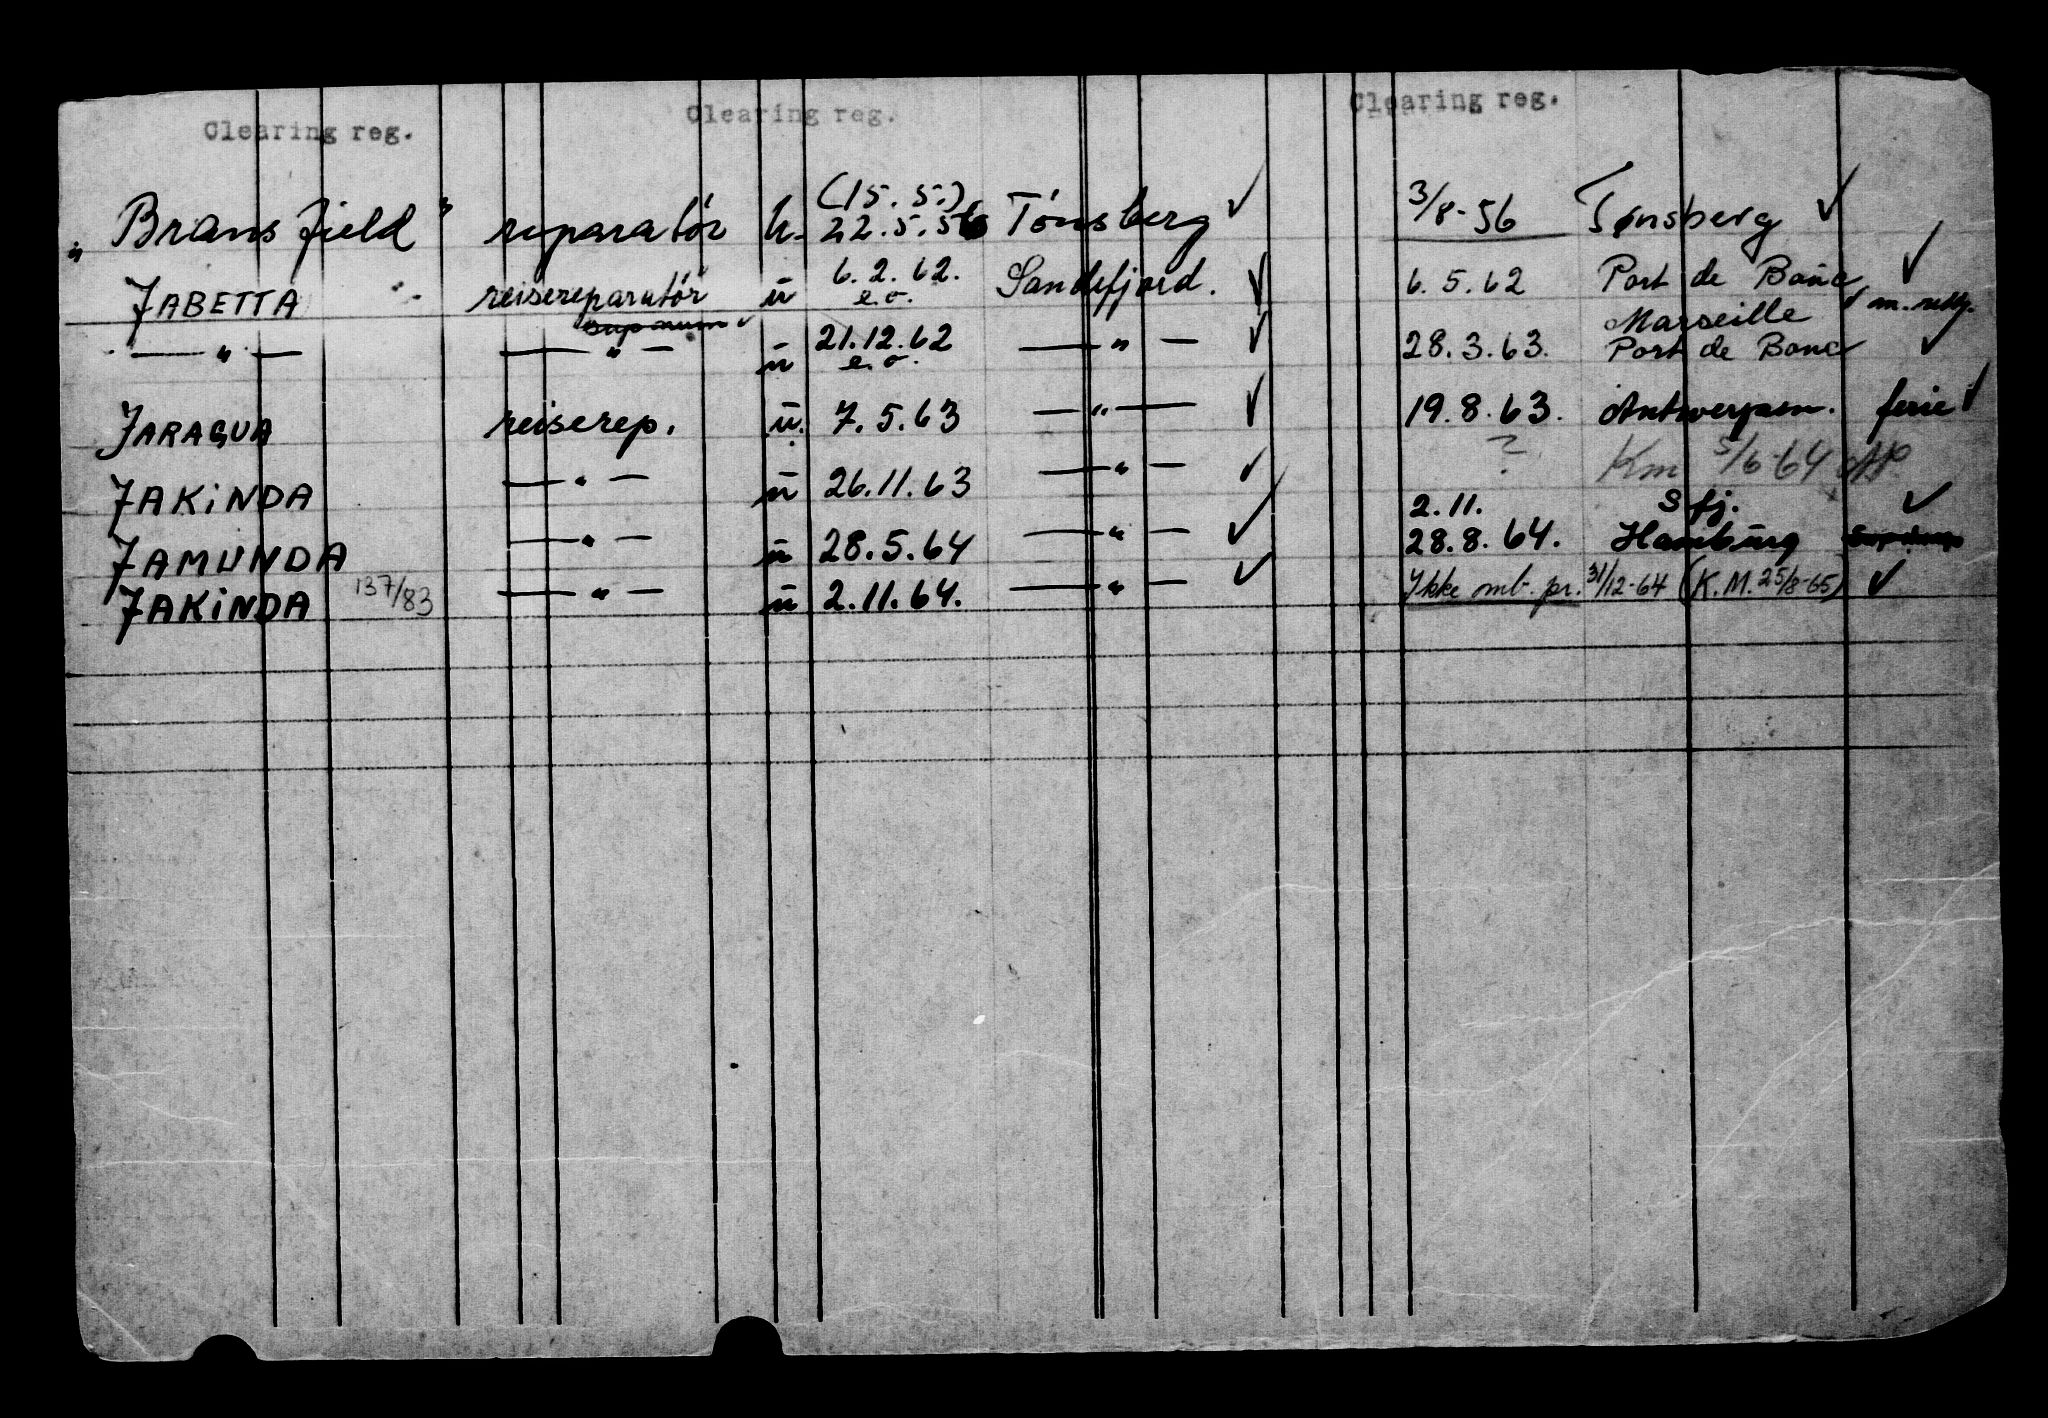 Clearing reg. Clearing reg. Clearing reg.
"Bransfield" reparatør h. (15.5.) 22.5.56 Tønsberg ✓ 3/8-56 Tønsberg ✓
JABETTA reisereparatør u 6.2.62. e.o. Sandefjord. ✓ 6.5.62 Port de Bouc ✓
Marseille ✓
—"— —"— u 21.12.62 e.o. —"— ✓ 28.3.63. Port de Bouc ✓
JARAGUA reiserep. u. 7.5.63 —"— ✓ 19.8.63. Antwerpen. ferie ✓
JAKINDA —"— u 26.11.63 —"— ✓ ? Km 5/6-64
2.11. Sfj. ✓
JAMUNDA —"— u 28.5.64 —"— ✓ 28.8.64. Hamburg
JAKINDA 137/83 —"— u 2.11.64. —"— ✓ Ikke omb. pr. 31/12-64 (K.M. 25/8-65) ✓